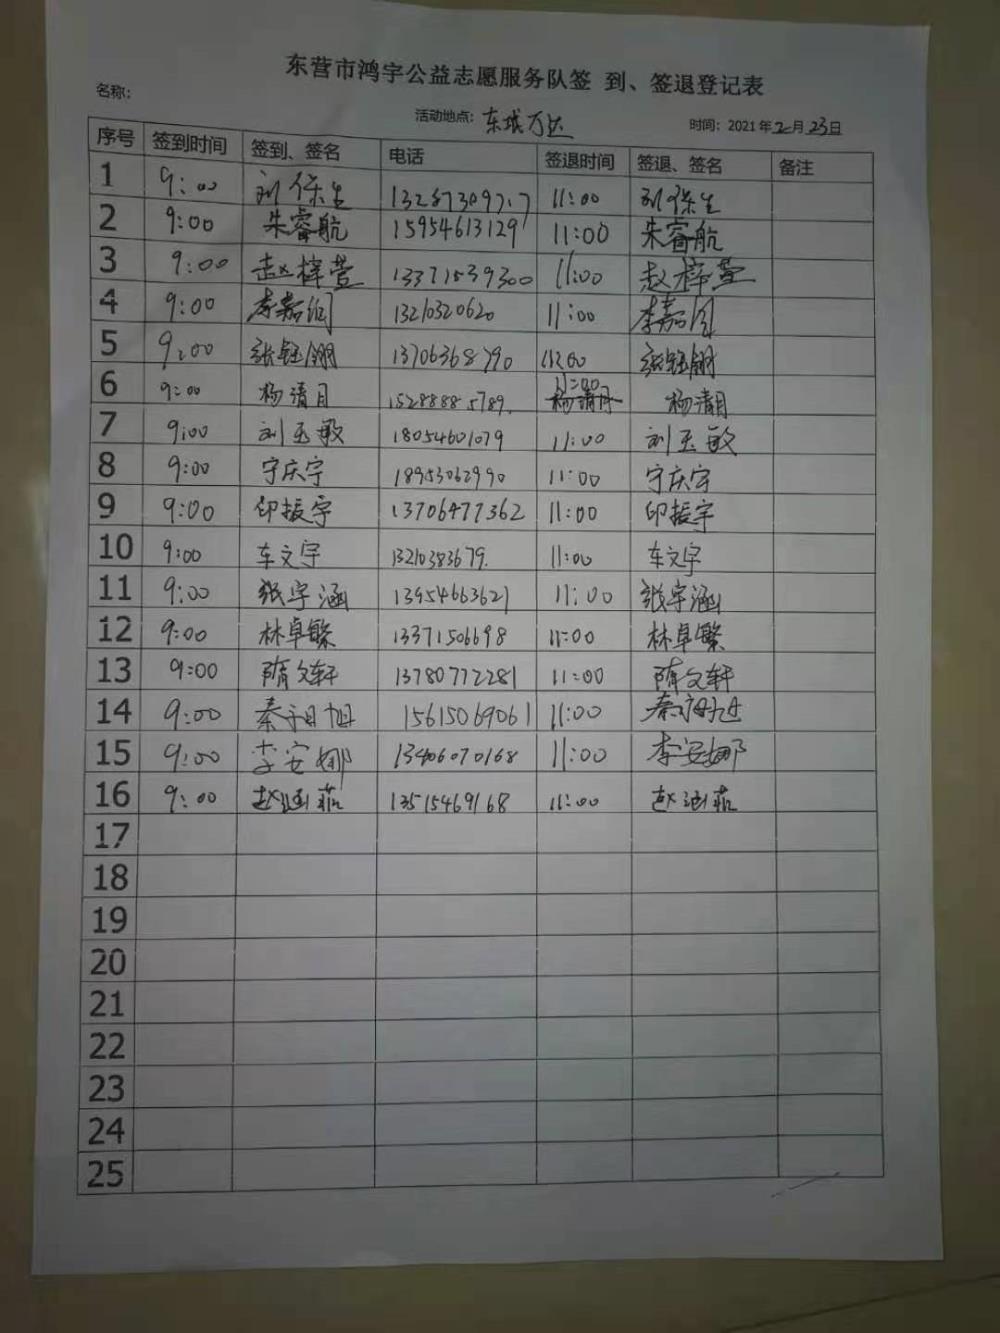 东营市鸿宇公益志愿服务队签 到、签退登记表
名称： 活动地点：东城万达 时间：2021年2月23日
序号 签到时间 签到、签名 电话 签退时间 签退、签名 备注
1 9:00 刘保生 11:00 刘保生
2 9:00 朱睿航 15954613129 11:00 朱睿航
3 9:00 赵梓萱 13371539300 11:00 赵梓萱
4 9:00 李嘉 13210320620 11:00 李嘉
5 9:00 张钰翎 13706368790 11:00 张钰翎
6 9:00 杨清月 15288885789. 11:00 杨清月
7 9:00 刘玉敏 18054601079 11:00 刘玉敏
8 9:00 宁庆宇 18953062990 11:00 宁庆宇
9 9:00 印振宇 13706477362 11:00 印振宇
10 9:00 车文宇 13210383679. 11:00 车文宇
11 9:00 张宇涵 13954663621 11:00 张宇涵
12 9:00 林卓繁 13371506698 11:00 林卓繁
13 9:00 隋文轩 13780772281 11:00 隋文轩
14 9:00 秦 旭 15615069061 11:00 秦
15 9:00 李安娜 13406070168 11:00 李安娜
16 9:00 赵涵菲 13515469168 11:00 赵涵菲
17
18
19
20
21
22
23
24
25